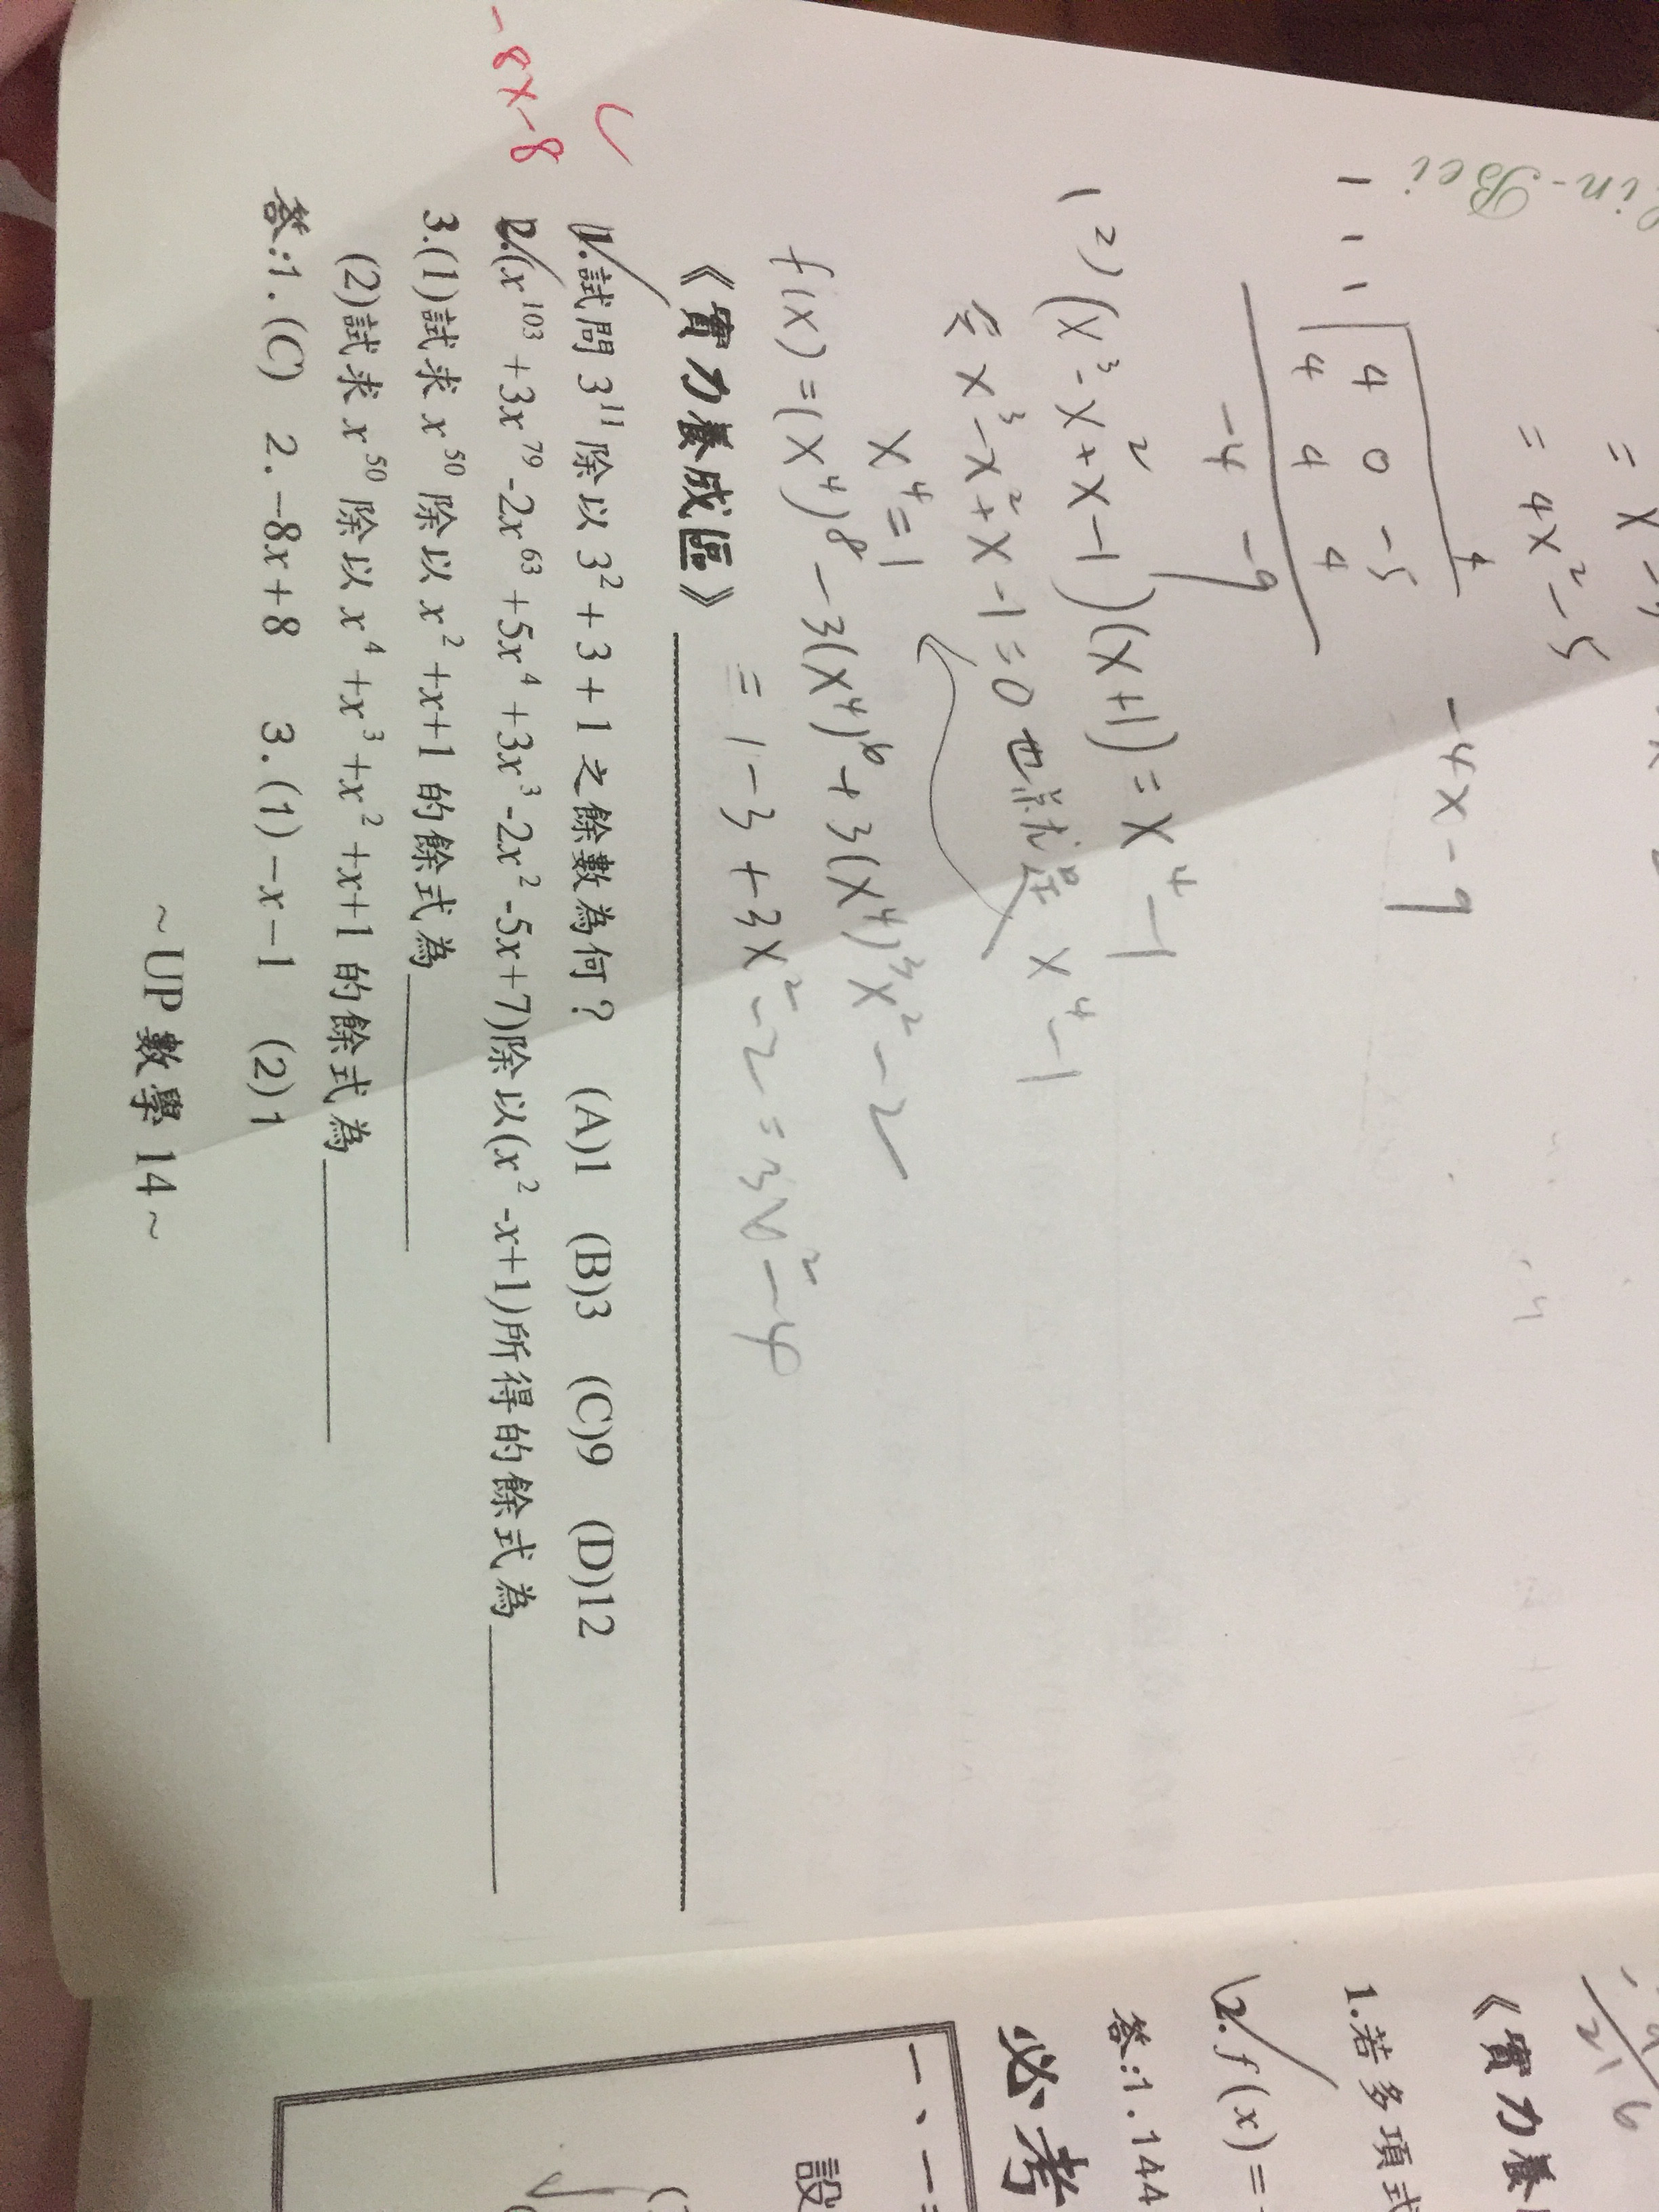 lin-Bei
= 4x² - 5
-4x - 9
1 1 1 4 0 -5 4
4 4 4
-4 -9
(2) (x³ - x² + x - 1)(x+1) = x⁴ - 1
令 x³ - x² + x - 1 = 0 也就是 x⁴ - 1
x⁴ = 1
f(x) = (x⁴)⁸ - 3(x⁴)⁶ + 3(x⁴)³x² - 2
= 1 - 3 + 3x² - 2 = 3x² - 4
《實力養成區》
C
1.試問 3¹¹ 除以 3² + 3 + 1 之餘數為何? (A)1 (B)3 (C)9 (D)12
-8x-8
2.(x¹⁰³ + 3x⁷⁹ - 2x⁶³ + 5x⁴ + 3x³ - 2x² - 5x + 7)除以(x² - x + 1)所得的餘式為
3.(1)試求 x⁵⁰ 除以 x² + x + 1 的餘式為
(2)試求 x⁵⁰ 除以 x⁴ + x³ + x² + x + 1 的餘式為
答:1.(C) 2.-8x+8 3.(1)-x-1 (2)1
~UP 數學 14~
《實力養
1.若多項式
2. f(x) =
答:1.144
必考
一、一
設